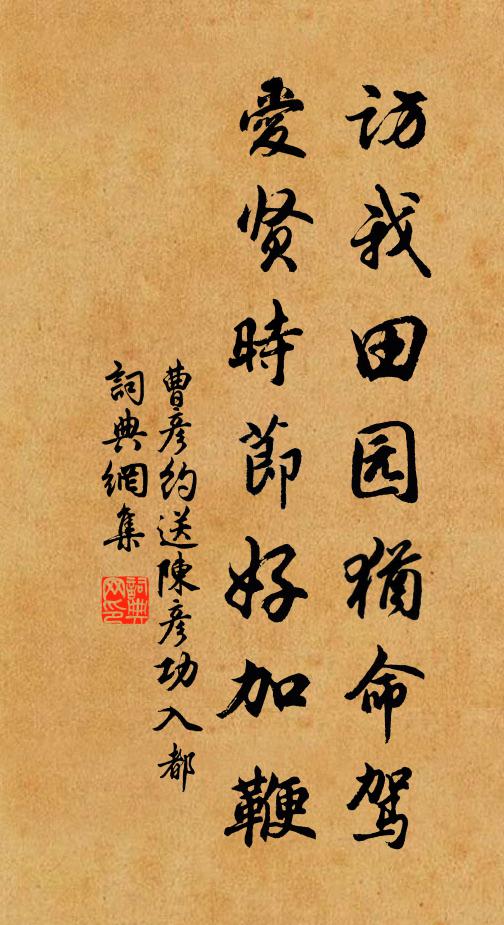 访我田园犹命驾
爱贤時節好加鞭
曹彦约送陳彦功入都
詞典網集
詞典网印